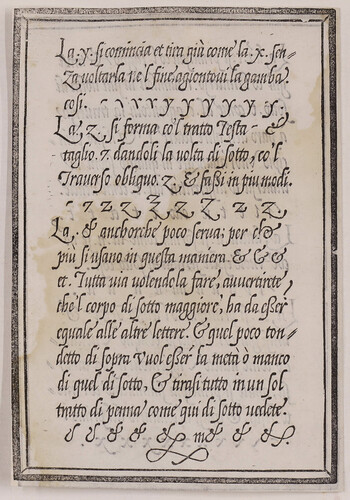 La, y. si comincia et tira giù come la. x. sen=
za voltarla ne'l fine agiontovi la gamba
cosi. - ı v v y y y y y y.
La, z. si forma co'l tratto Testa -
taglio. 7. dandoli la volta di sotto, co'l
Traverso obliquo. z. & fassi in piu modi.
- 7 z z z z z z z
La, & anchorche poco serva: per che
più si usano in questa maniera & & &
et. Tutta via volendola fare, avvertirete
che'l corpo di sotto maggiore, ha da eßer
equale alle altre lettere. & quel poco ton=
detto di sopra vuol eßer la metà ò manco
di quel di sotto, & tirasi tutto in un sol
tratto di penna come qui di sotto vedete.
& & & &